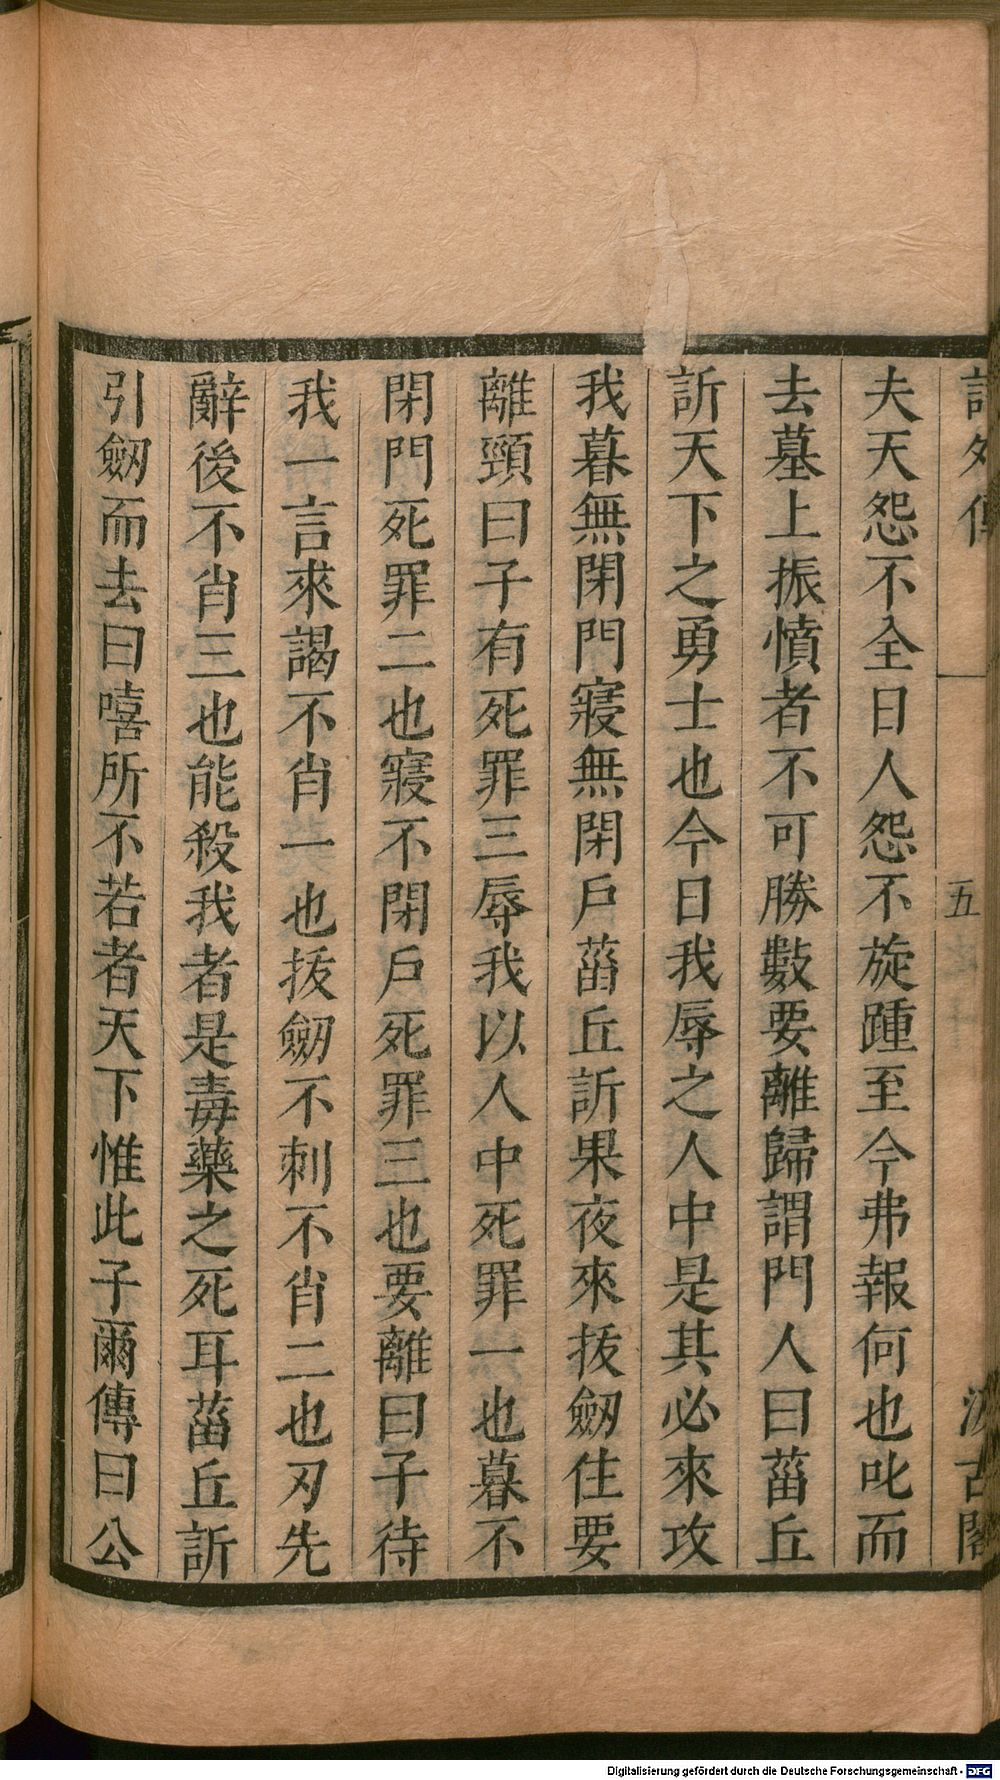 詩外傳 五 汲古閣
夫天怨不全日人怨不旋踵至今弗報何也叱而
去墓上振憤者不可勝數要離歸謂門人曰菑丘
訢天下之勇士也今日我辱之人中是其必來攻
我暮無閉門寢無閉戶菑丘訢果夜來拔劒住要
離頸曰子有死罪三辱我以人中死罪一也暮不
閉門死罪二也寢不閉戶死罪三也要離曰子待
我一言來謁不肖一也拔劒不刺不肖二也刃先
辭後不肖三也能殺我者是毒藥之死耳菑丘訢
引劒而去曰嘻所不若者天下惟此子爾傳曰公
Digitalisierung gefördert durch die Deutsche Forschungsgemeinschaft - DFG